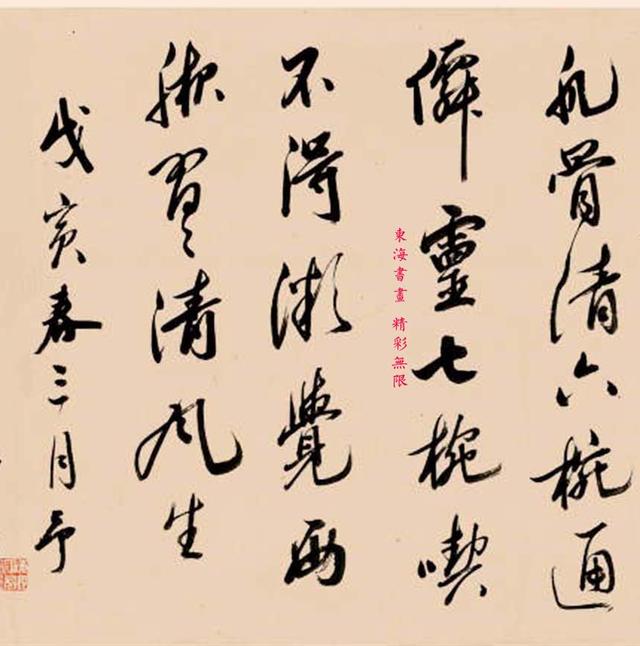 肌骨清六椀通
僊靈七椀喫
不得漸覺兩
腋習々清風生
戊寅春三月予
東海書畫 精彩無限